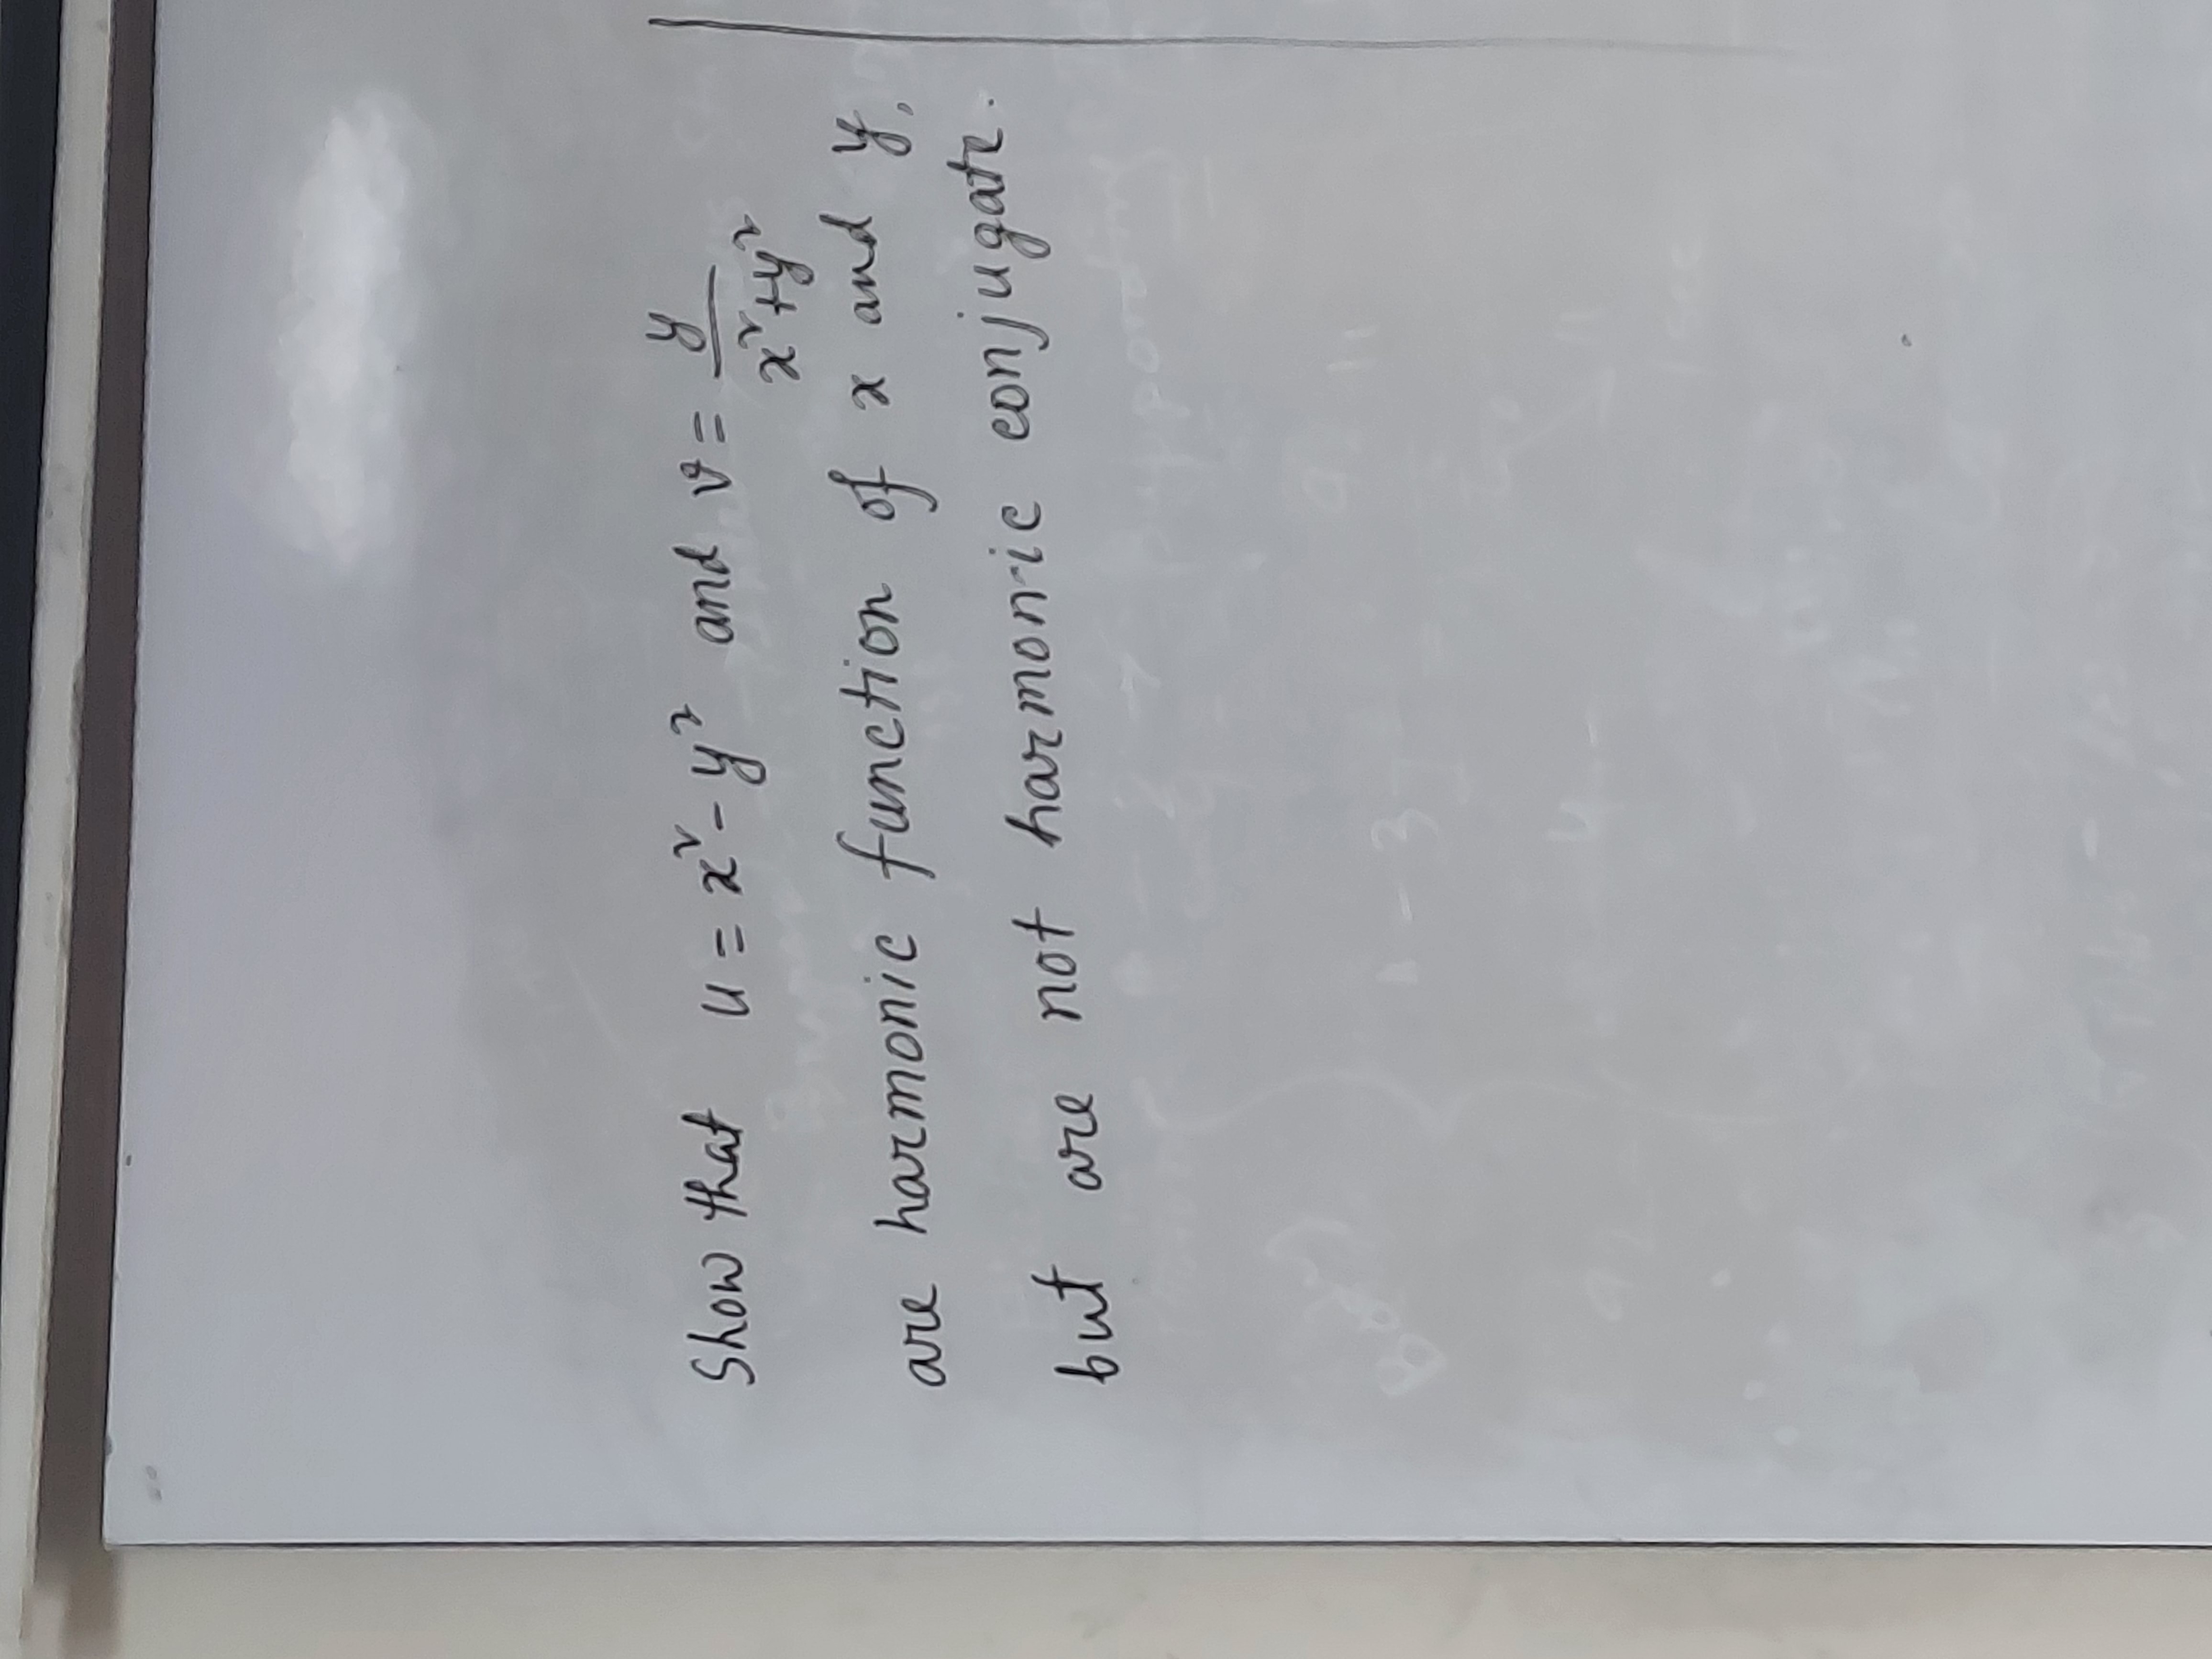 Show that u = x² - y² and v = y/(x² + y²)
are harmonic function of x and y,
but are not harmonic conjugate.
Body